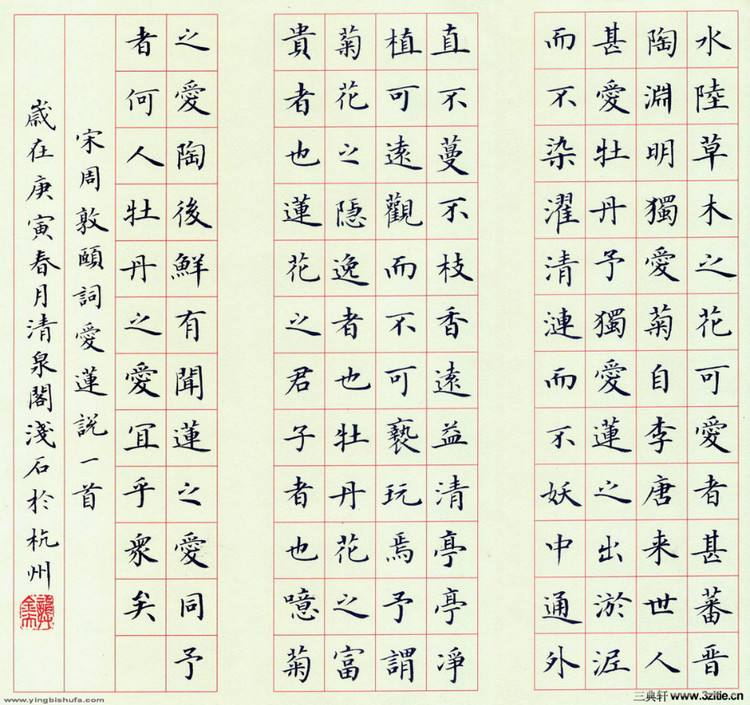 水陸草木之花可愛者甚蕃晋
陶淵明獨愛菊自李唐来世人
甚愛牡丹予獨愛蓮之出淤泥
而不染濯清漣而不妖中通外
直不蔓不枝香遠益清亭亭凈
植可遠觀而不可褻玩焉予謂
菊花之隱逸者也牡丹花之富
貴者也蓮花之君子者也噫菊
之愛陶後鮮有聞蓮之愛同予
者何人牡丹之愛宜乎衆矣
宋周敦頤詞愛蓮説一首
歲在庚寅春月清泉閣淺石於杭州
www.yingbishufa.com
三典轩 www.3zitie.cn